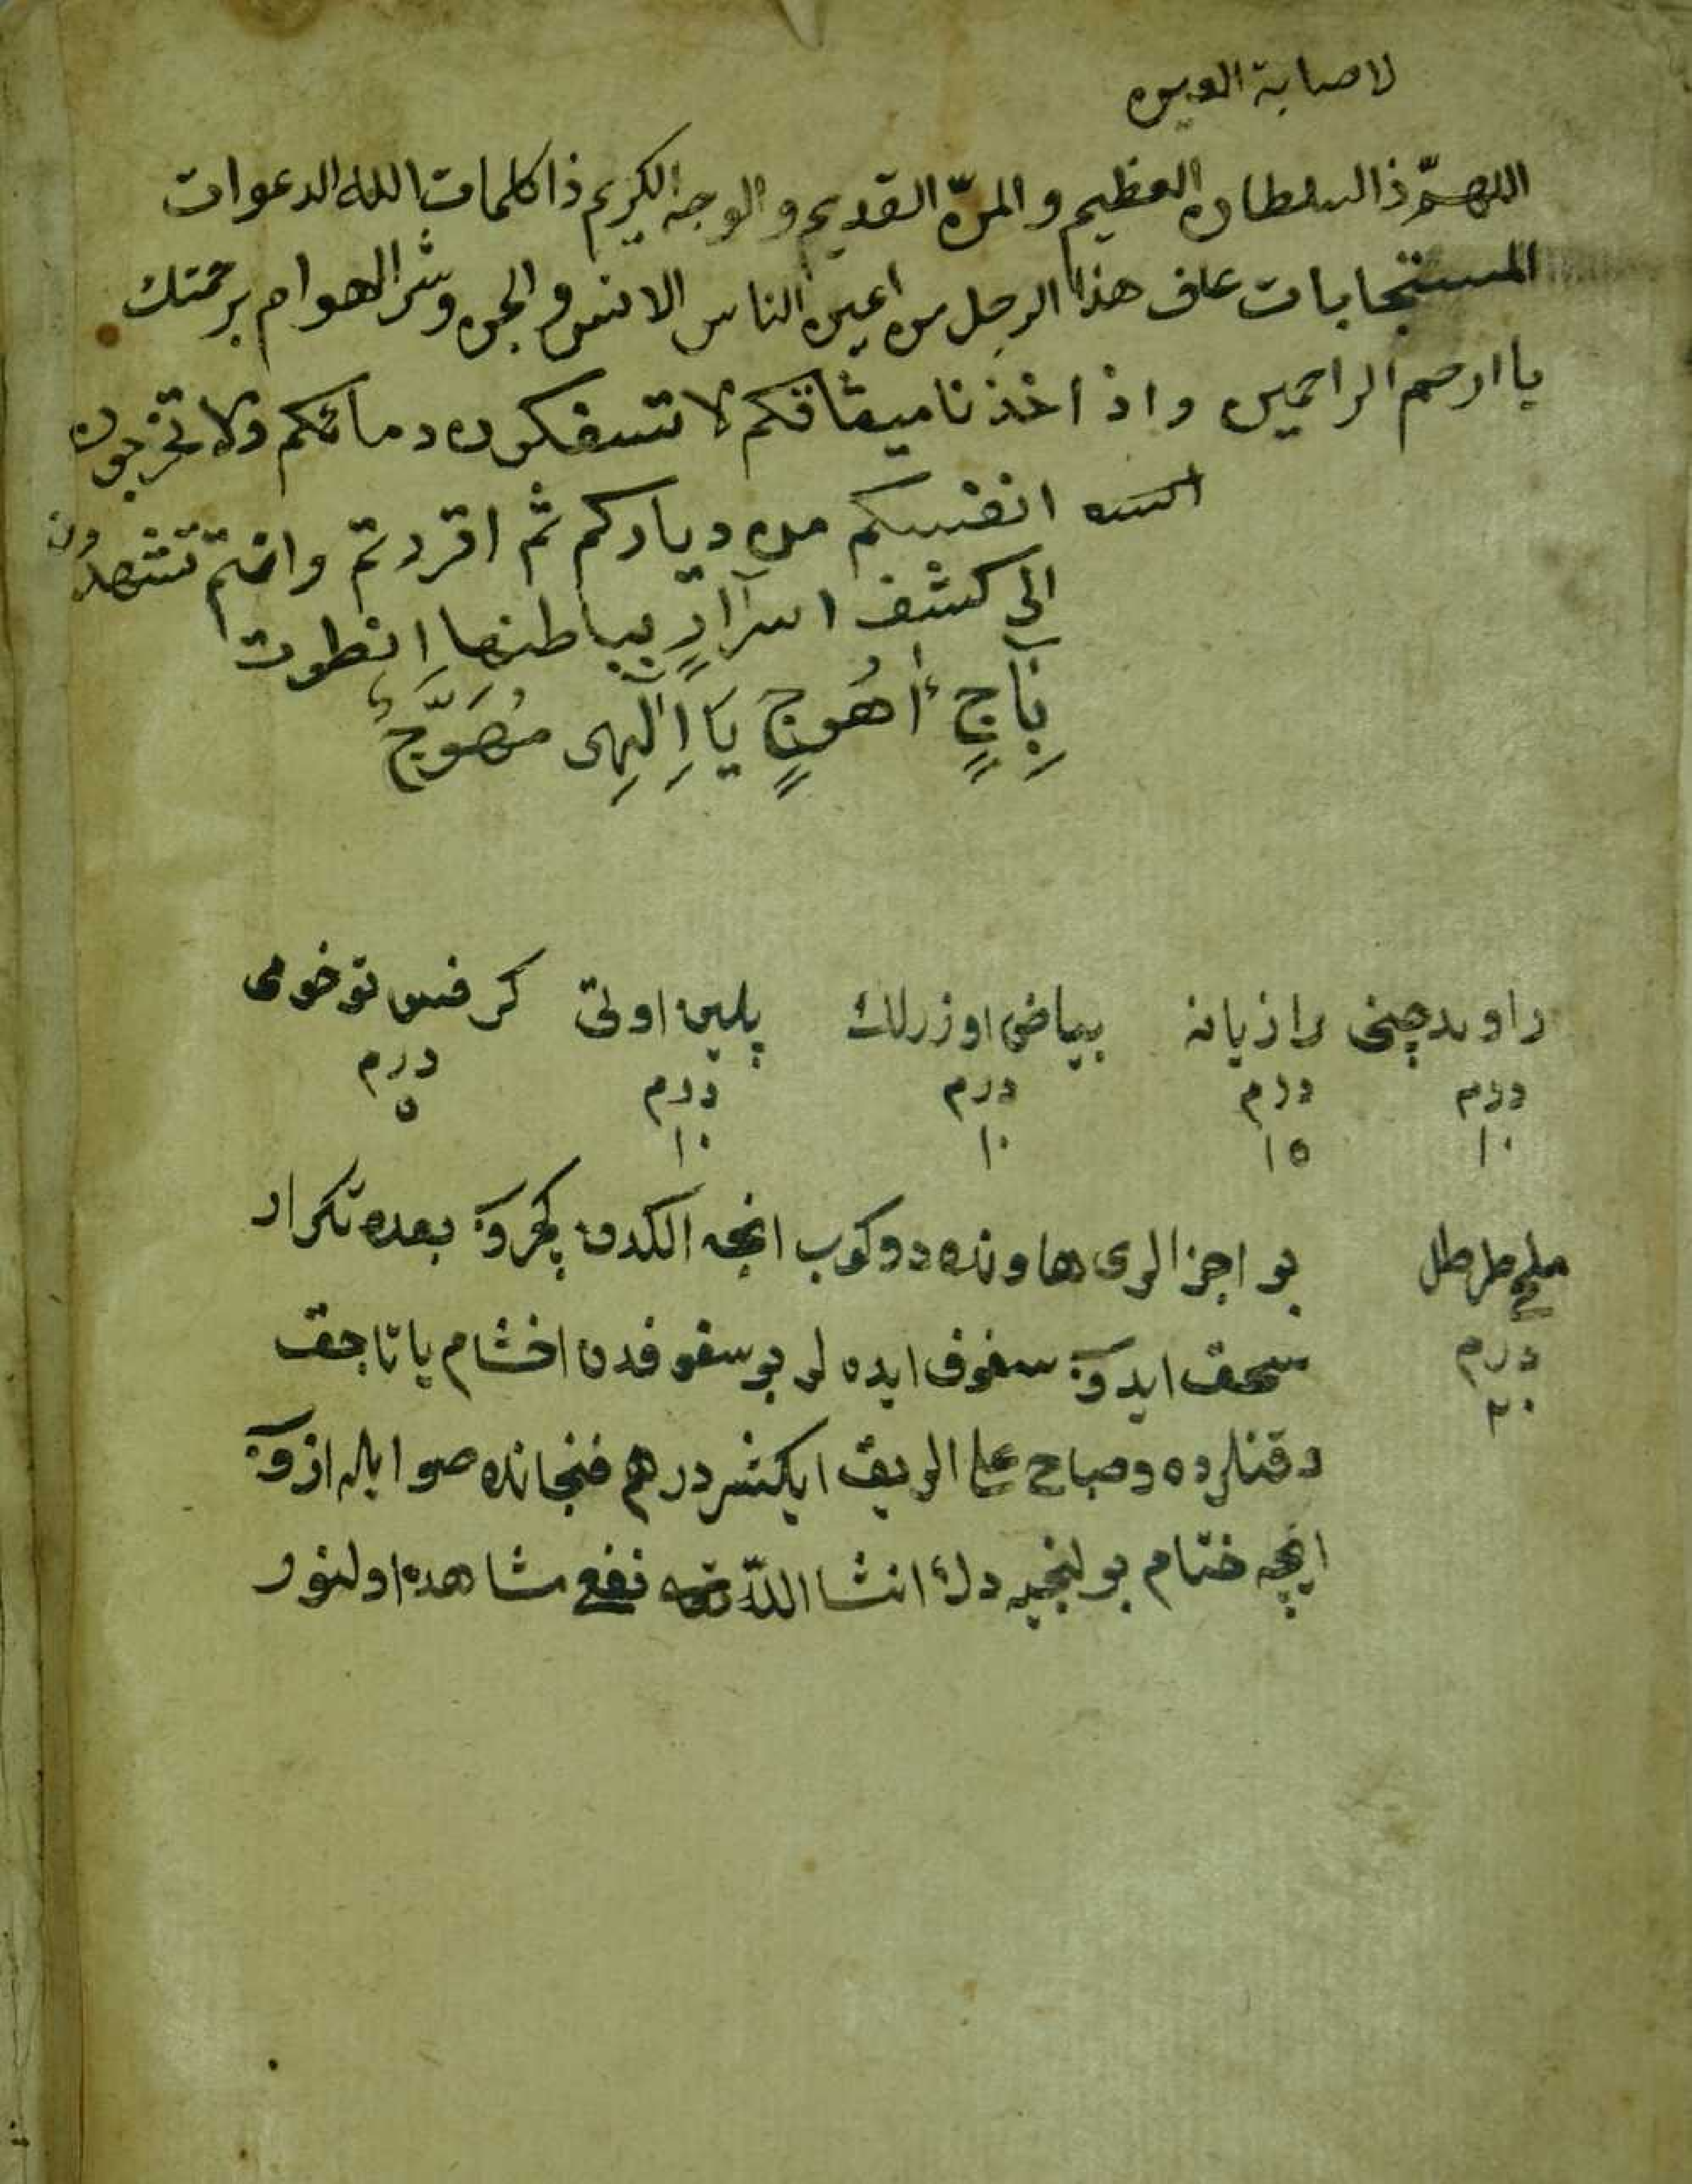 لاصابة العين
اللهمّ ذا السلطان العظيم والمنّ القديم والوجه الكريم ذا كلمات الله الدعوات
المستجابات عاف هذا الرجل من اعين الناس الانس والجن وشر الهوام برحمتك
يا ارحم الراحمين واذ اخذنا ميثاقكم لا تسفكون دمائكم ولا تخرجون
انفسكم من دياركم ثم اقررتم وانتم تشهدون
الى كشف اسرارٍ بباطنها انطوت
بِآجٍ أهُوجٍ يَا اِلٰهِى مُهَوَّجُ
راوند چينى رازيانه بياض اوزرلك پلين اوتى كرفس توخومى
درم درم درم درم درم
١٠ ١٥ ١٠ ١٠ ٥
ملح طرطل
درم
٢٠
بو اجزالرى هاونده دوكوب انجه الكدن كچروب بعده تكرار
سحق ايدوب سفوف ايده لر بو سفوفدن اخشام ياتاجق
وقتلرده وصباح على الريق ايكشر درهم فنجانده صو ايله ازوب
ايچه ختام بولنجيه دك انشا الله نفع مشاهده اولنور